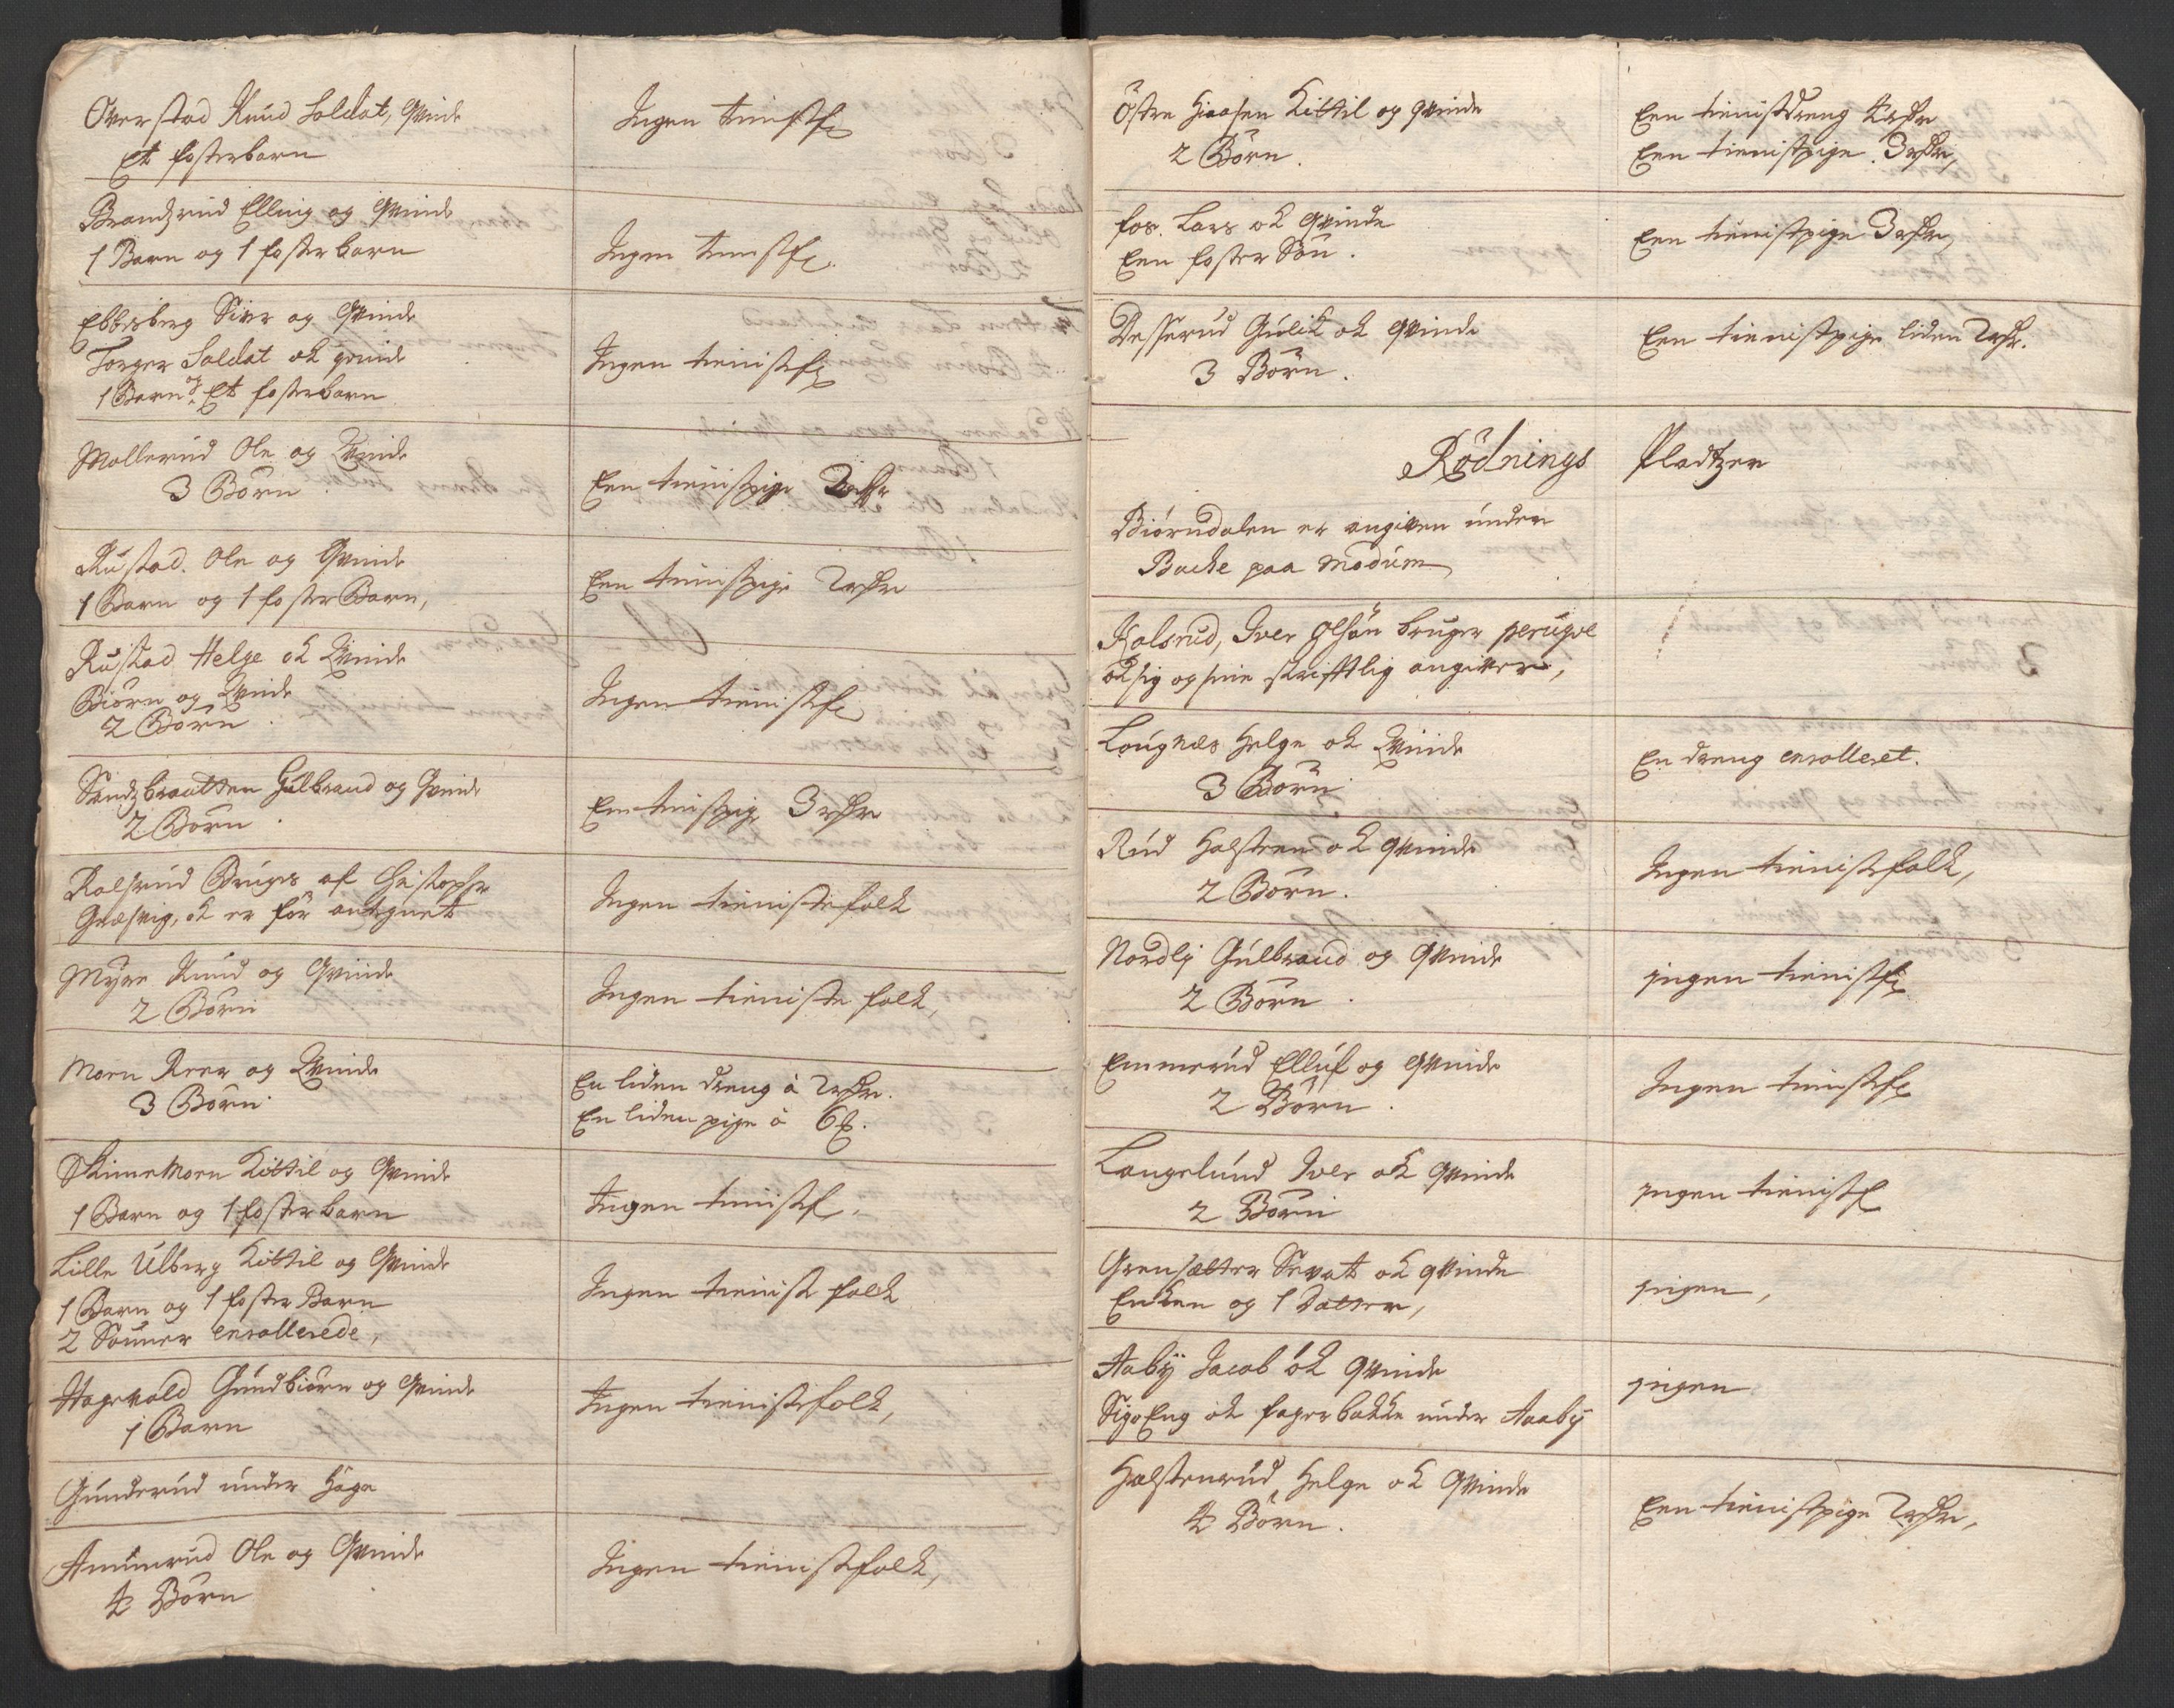 Overstad Knud Soldat, Qvinde
Et fosterbarn
Ingen tienistf
Brandzrud Elling og Qvinde
1 Barn og 1 fosterbarn
Ingen tienistf.
Ebbesberg Siver og Qvinde
Torger Soldat ok qvinde
1 Barn og Et fosterbarn
Ingen tienistf
Mollerud Ole og Qvinde
3 Börn
Een tienistpige 2 rdr
Rustad. Ole og Qvinde
1 Barn og 1 fosterBarn,
Een tienistpige 2 rdr
Rustad Helge ok Qvinde
Biörn og Qvinde
2 Börn
Ingen tienistf
Gulbrand og Qvinde
2 Börn
Een tienistpige 3 rdr
Kalsrud Bruges af Christopher
Græsvig, ok er för antegnet
Ingen tienistefolk
Myre Knud og Qvinde
2 Börn
Ingen tieniste folk,
Moen Reer og Qvinde
3 Börn
En liden dreng à 2 rdr.
En liden pige à 6
Kittil og Qvinde
1 Barn og 1 fosterbarn
Ingen tienistf.
Lille Ulberg Kittil og Qvinde
1 Barn og 1 foster Barn
2 Sönner enrollerede,
Ingen tienist folk
Hagevald Gundbiörn og Qvinde
1 Barn
Ingen tienistefolk,
Gunderud under Haga
Amunrud Ole og Qvinde
4 Börn
Ingen tienistefolk,
Östre Hiaasen Kittil og qvinde
2 Börn.
Een tienistdreng 4 rdr
Een tienistpige 3 rdr,
fos. Lars ok Qvinde
Een foster Sön.
Een tienistpige 3 rdr,
Gulik ok Qvinde
3 Börn.
Een tienistpige liden 2 rdr.
Rödnings Pladtzer
Biörndalen er angiven under
Backe paa Modum
Kalsrud, Iver Olsön bruger
ok sig og sine skrifftlig angiver,
Lougnæs Helge ok Qvinde
3 Börn
En dreng enrolleret.
Rud Halsten ok Qvinde
2 Börn.
Ingen tienistefolk,
Nordly Gulbrand og Qvinde
2 Börn.
jngen tienistf
Emmerud Elluf og Qvinde
2 Börn.
Ingen tienistf
Langelund Iver ok Qvinde
2 Börn
jngen tienistf
Grensætter Sevat ok qvinde
Enken og 1 Datter,
jngen,
Aaby Jacob ok Qvinde
SigeEng ok fagerbakke under Aaby
jngen
Halstenrud, Helge ok Qvinde
4 Börn.
Een tienistpige 2 rdr,